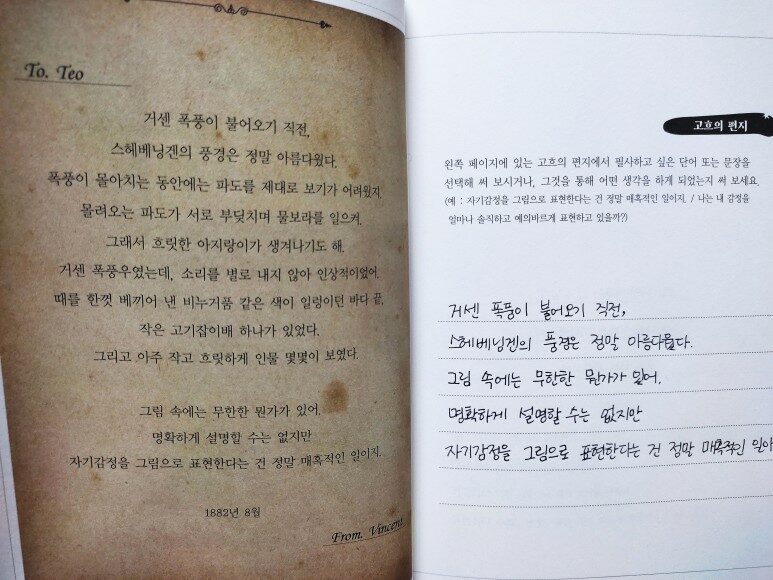 To. Teo
거센 폭풍이 불어오기 직전,
스헤베닝겐의 풍경은 정말 아름다웠다.
폭풍이 몰아치는 동안에는 파도를 제대로 보기가 어려웠지.
몰려오는 파도가 서로 부딪치며 물보라를 일으켜.
그래서 흐릿한 아지랑이가 생겨나기도 해.
거센 폭풍우였는데, 소리를 별로 내지 않아 인상적이었어.
때를 한껏 베끼어 낸 비누거품 같은 색이 일렁이던 바다 끝,
작은 고기잡이배 하나가 있었다.
그리고 아주 작고 흐릿하게 인물 몇몇이 보였다.
그림 속에는 무한한 뭔가가 있어.
명확하게 설명할 수는 없지만
자기감정을 그림으로 표현한다는 건 정말 매혹적인 일이지.
1882년 8월
From. Vincent
고흐의 편지
왼쪽 페이지에 있는 고흐의 편지에서 필사하고 싶은 단어 또는 문장을
선택해 써 보시거나, 그것을 통해 어떤 생각을 하게 되었는지 써 보세요.
(예 : 자기감정을 그림으로 표현한다는 건 정말 매혹적인 일이지. / 나는 내 감정을
얼마나 솔직하고 예의바르게 표현하고 있을까?)
거센 폭풍이 불어오기 직전,
스헤베닝겐의 풍경은 정말 아름다웠다.
그림 속에는 무한한 뭔가가 있어.
명확하게 설명할 수는 없지만
자기감정을 그림으로 표현한다는 건 정말 매혹적인